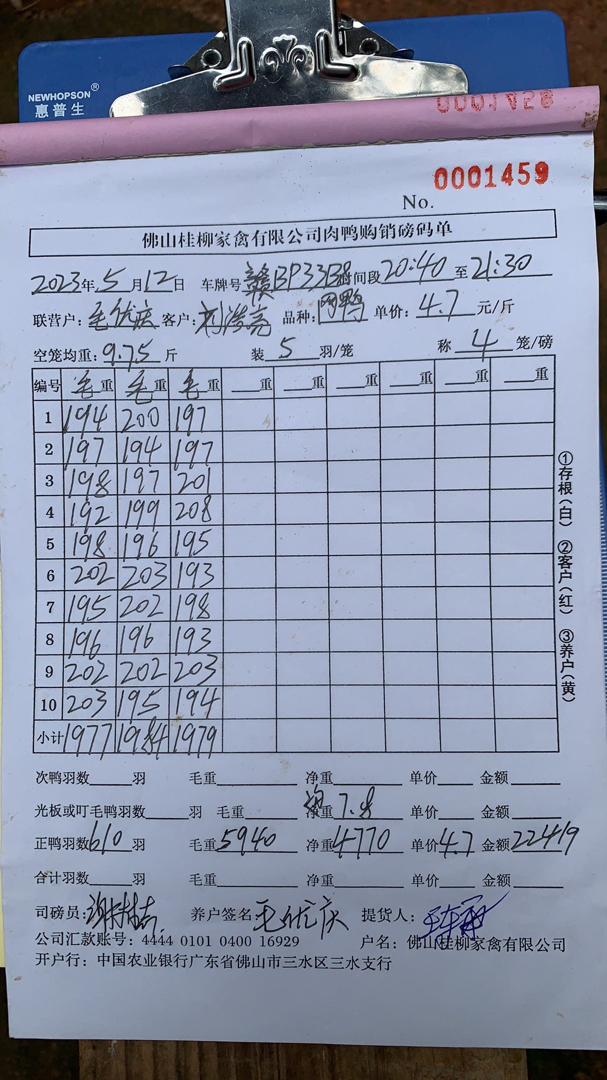 NEWHOPSON®
惠普生
0001459
No.
佛山桂柳家禽有限公司肉鸭购销磅码单
2023年5月12日 车牌号赣BP33B8时间段20:40至21:30
联营户:毛优庆 客户:刘浩亮 品种:肉鸭 单价:4.7元/斤
空笼均重:9.75斤 装5羽/笼 称4笼/磅
编号 毛重 毛重 毛重 重 重 重 重 重 重
1 194 200 197
2 197 194 197
3 198 197 201
4 192 199 208
5 198 196 195
6 202 203 193
7 195 202 198
8 196 196 193
9 202 202 203
10 203 195 194
小计 1977 1984 1979
①存根(白) ②客户(红) ③养户(黄)
次鸭羽数 羽 毛重 净重 单价 金额
光板或叮毛鸭羽数 羽 毛重 净重 7.8 单价 金额
正鸭羽数610羽 毛重5940 净重4770 单价4.7 金额22419
合计羽数 羽 毛重 净重 单价 金额
司磅员: 养户签名毛优庆 提货人:
公司汇款账号:4444 0101 0400 16929 户名:佛山桂柳家禽有限公司
开户行:中国农业银行广东省佛山市三水区三水支行